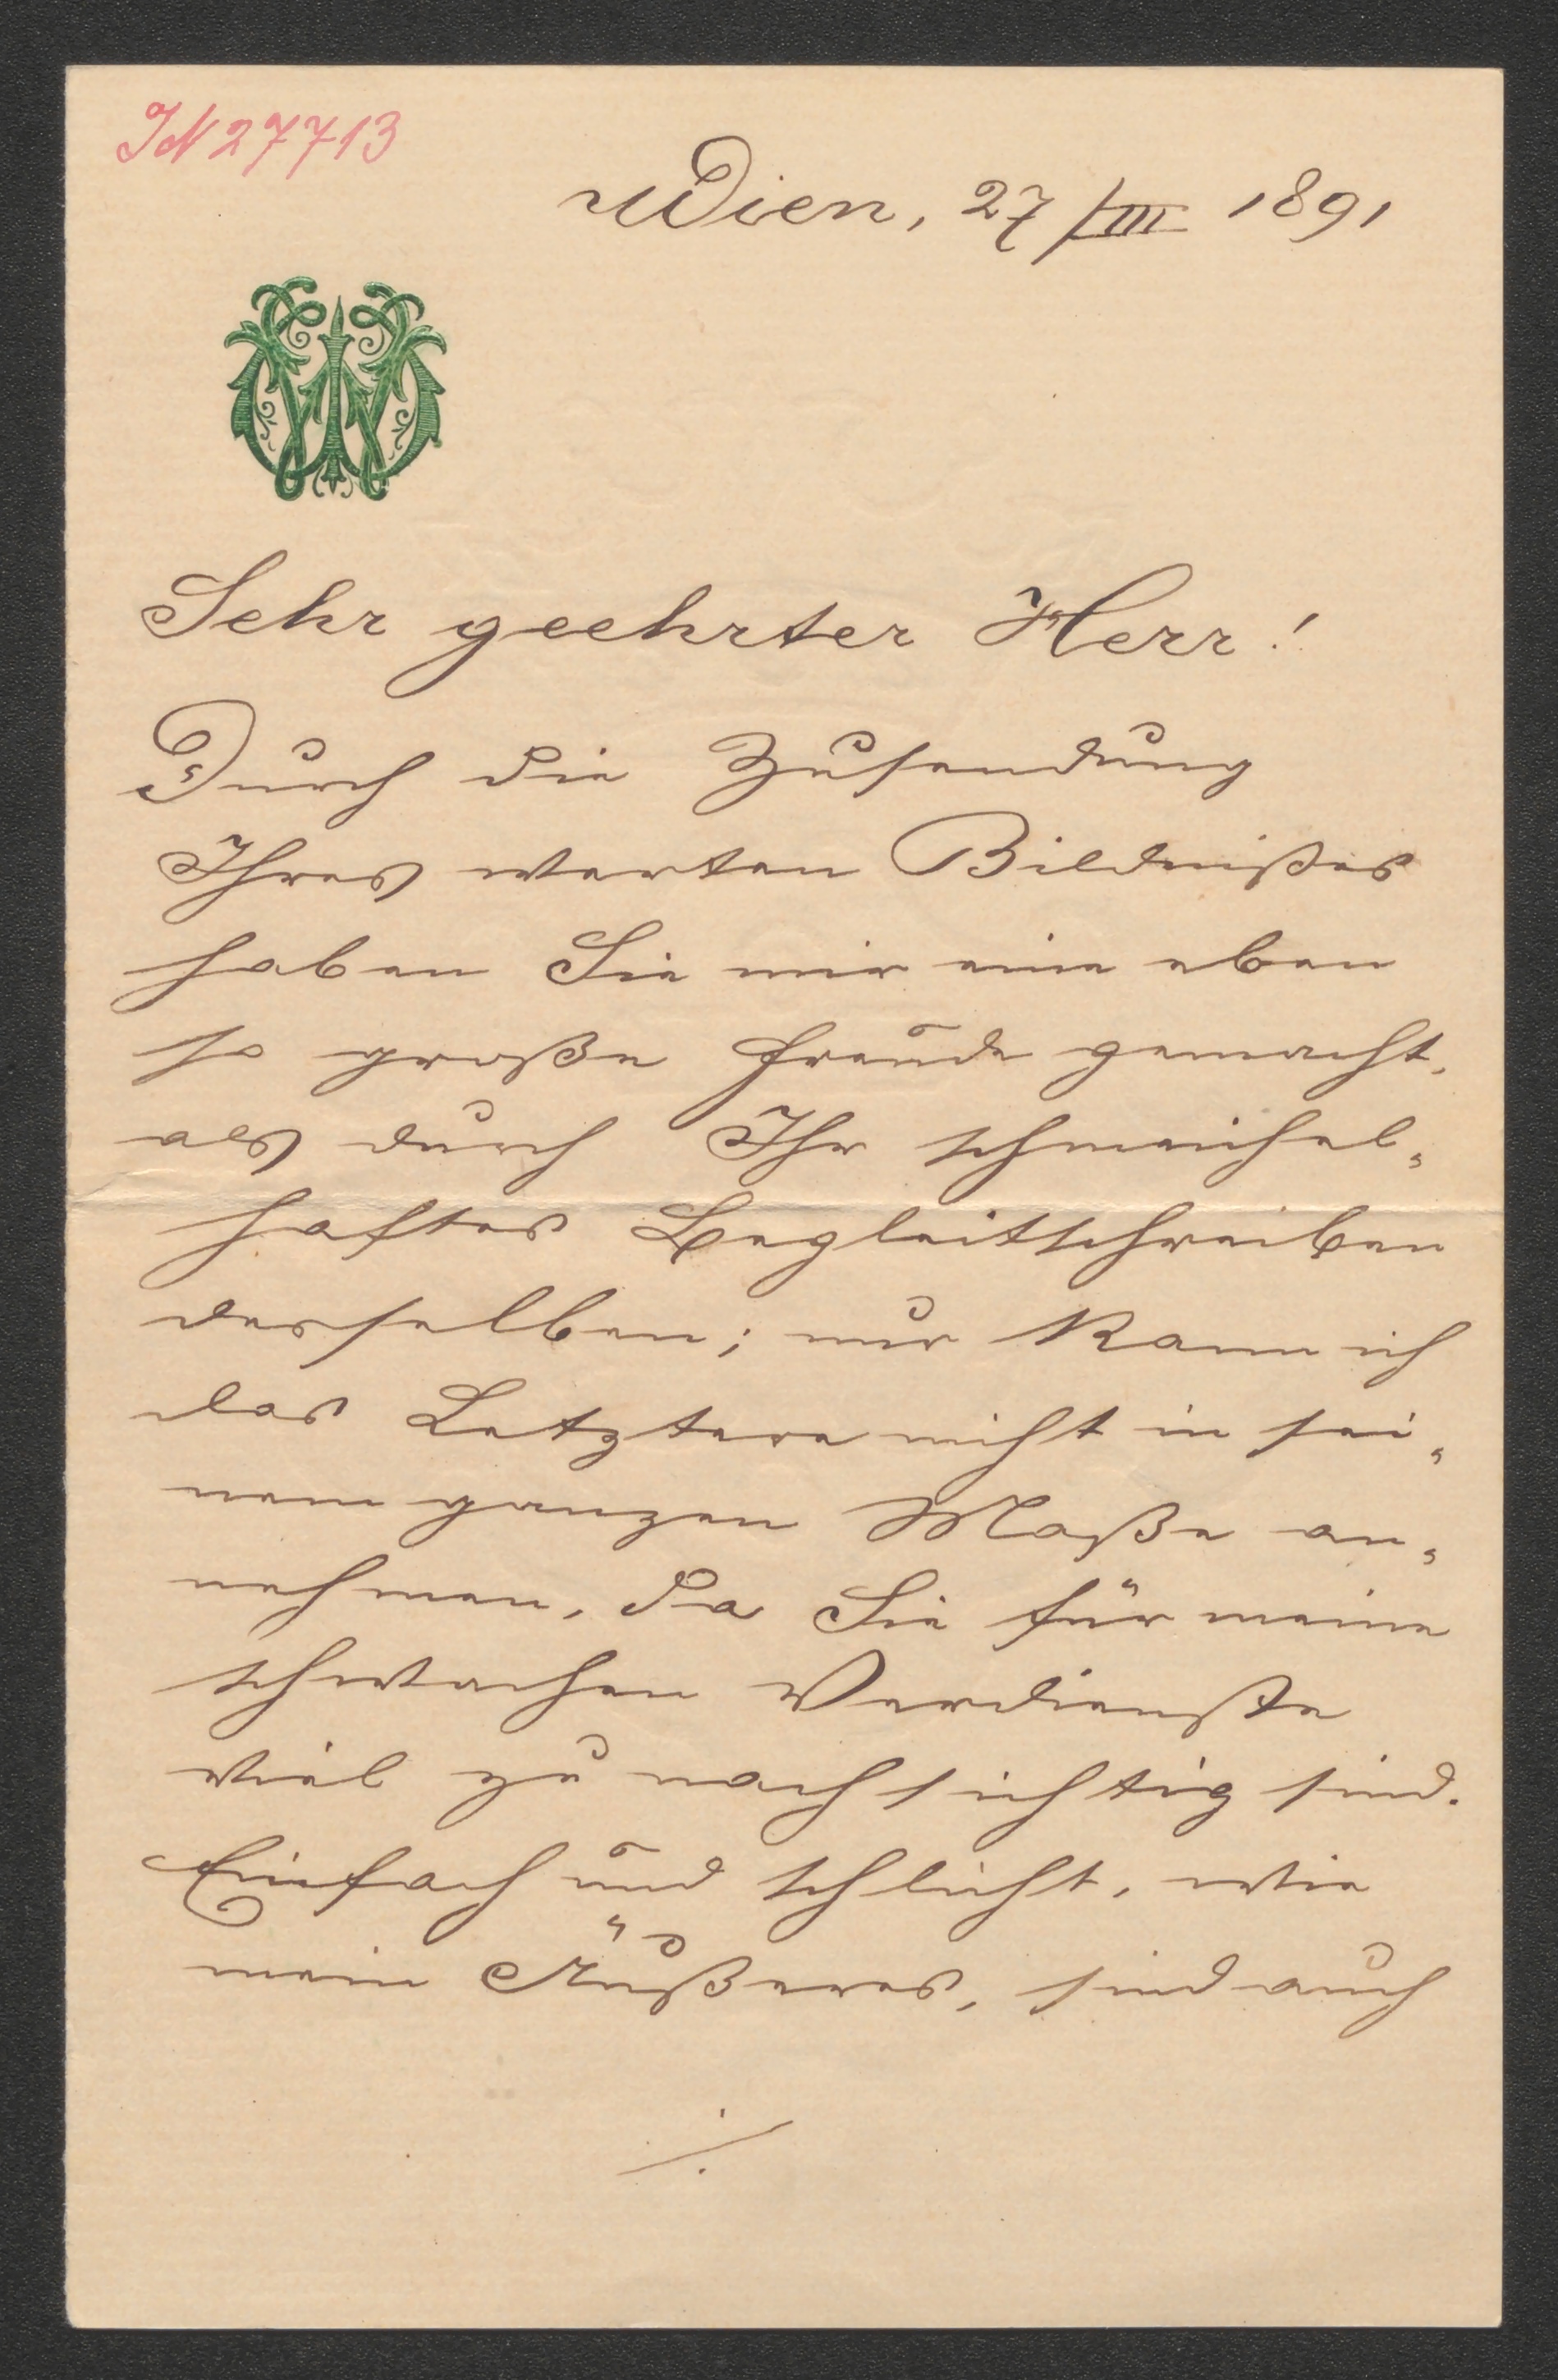 IN 27713
Wien, 27/III 1891
Sehr geehrter Herr!
Durch die Zusendung
Ihres werten Bildnißes
haben Sie mir eine eben
so große Freude gemacht,
als durch Ihr schmeichel-
haftes Begleitschreiben
desselben; nur kann ich
das Letztere nicht in sei-
nem ganzen Maße an-
nehmen, da Sie für meine
schwachen Verdienste
viel zu nachsichtig sind.
Einfach und schlicht, wie
mein Äußeres, sind auch
./.